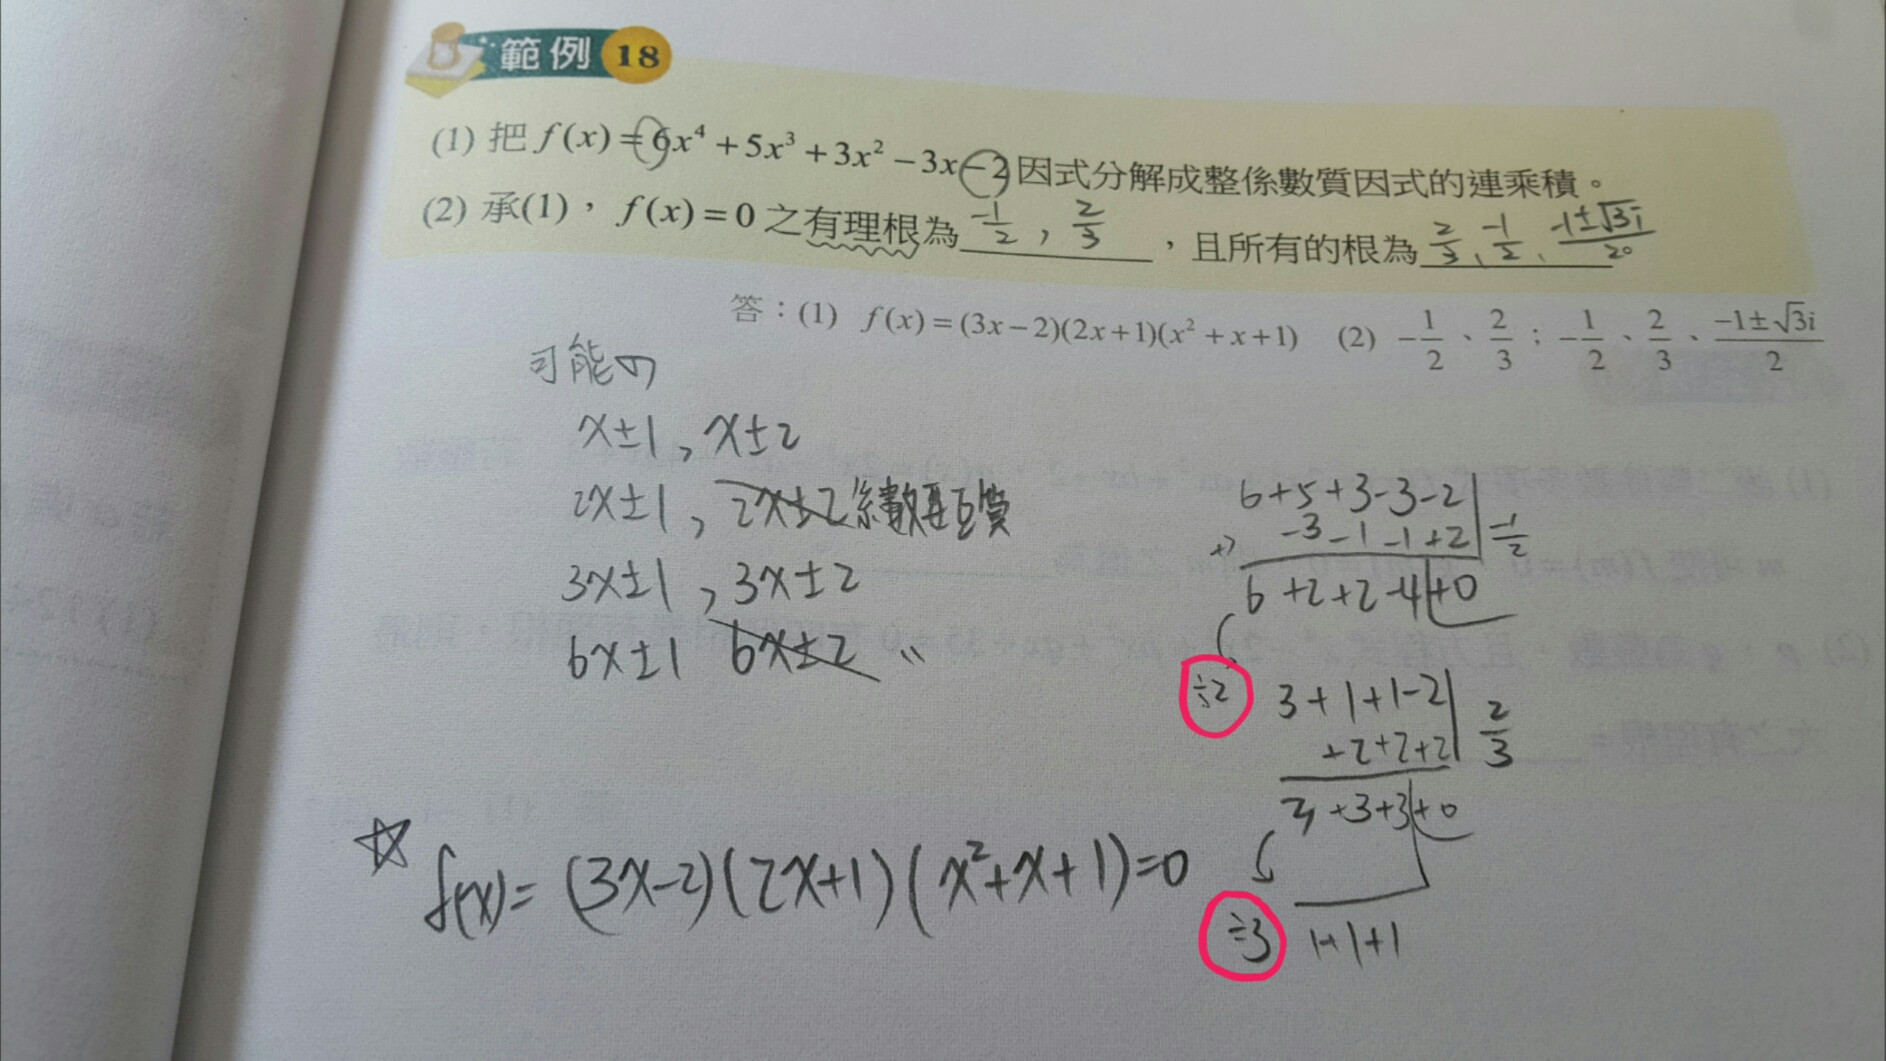 範例 18
(1) 把 f(x)=6x⁴+5x³+3x²−3x−2 因式分解成整係數質因式的連乘積。
(2) 承(1),f(x)=0 之有理根為 -1/2 , 2/3 ,且所有的根為 2/3、-1/2、-1±√3i/2
答:(1) f(x)=(3x−2)(2x+1)(x²+x+1) (2) −1/2、2/3;−1/2、2/3、−1±√3i/2
可能の
x±1, x±2
2x±1, 2x±2 係數要互質
3x±1, 3x±2
6x±1 6x±2 〃
6+5+3-3-2 | -1/2
+) -3-1-1+2
6+2+2-4+0
÷2 3+1+1-2 | 2/3
+2+2+2
3+3+3+0
÷3 1+1+1
☆ f(x)= (3x-2)(2x+1)(x²+x+1)=0